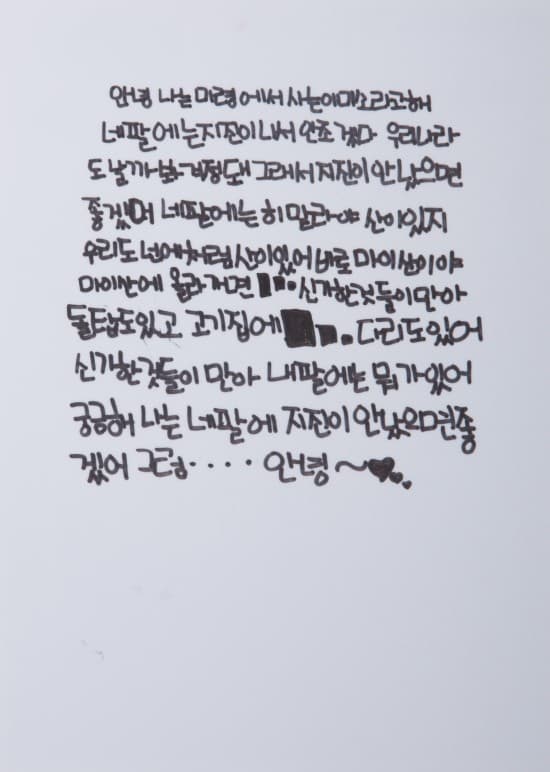 안녕 나는 미령에서 사는이미소라고해
네팔에는지진이나서 안쪼겠다 우리나라
도 날까봐 걱정돼 그래서 지진이 안났으면
좋겠어 네팔에는히말라야 산이있지
우리도 너에처럼산이있어 바로 마이산이야
마이산에 올라가면 신기한것들이만아
돌탑도있고 고기집에 다리도있어
신기한것들이 만아 내팔에는 뭐가있어
궁금해 나는 네팔에 지진이 안났으면좋
겠어 그럼···· 안녕~♥